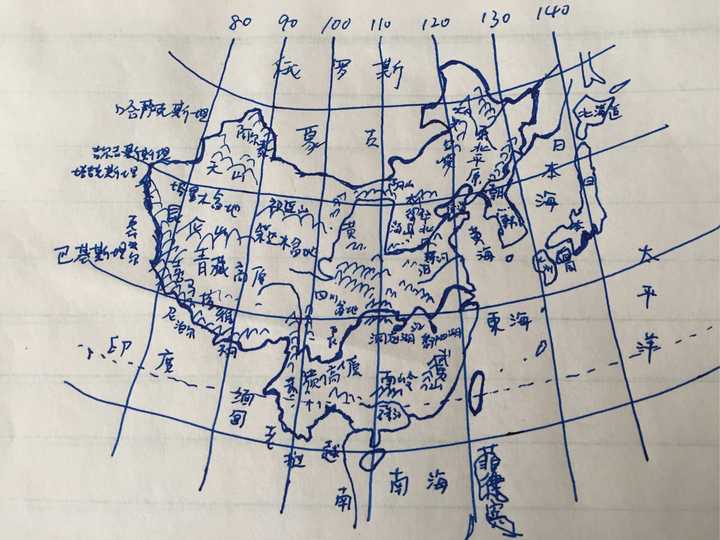 80 90 100 110 120 130 140
俄罗斯
哈萨克斯坦
蒙古
北海道
吉尔吉斯斯坦
塔吉克斯坦
天山
东北平原
日本海
日本
朝
韩
塔里木盆地
祁连山
柴达木盆地
黄
黄海
巴基斯坦
昆仑山
青藏高原
四国
太平洋
四川盆地
喜马拉雅
尼泊尔
长江
洞庭湖
鄱阳湖
东海
印度
云贵高原
南岭
武夷山
缅甸
老挝
越南
南海
菲律宾